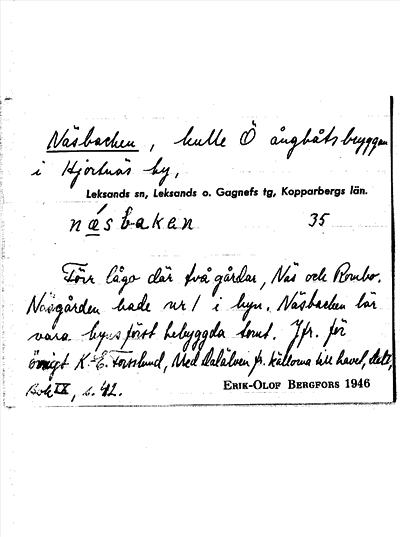 Näsbacken, kulle Ö ångbåtsbryggan
i Hjortnäs by,
Leksands sn, Leksands o. Gagnefs tg, Kopparbergs län.
næ̀sbakan 35
Förr lågo där två gårdar, Näs och Rombo.
Näsgården hade nr 1 i byn. Näsbacken lär
vara byns först bebyggda tomt. Jfr. för
övrigt K.-E. Forsslund, Med Dalälven fr. källorna till havet, del I,
Bok IX, s. 42.
ERIK-OLOF BERGFORS 1946